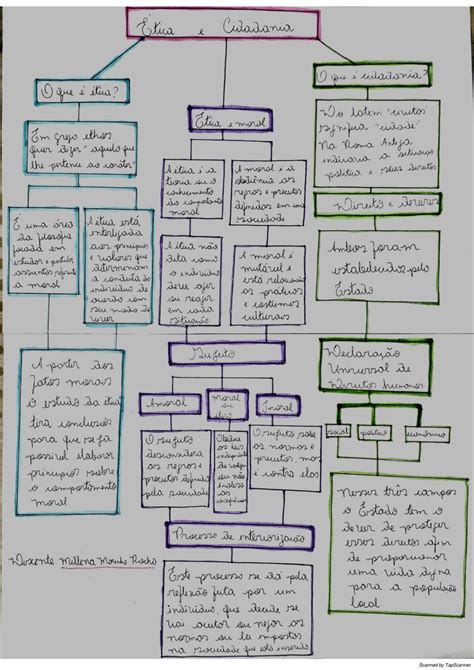 Ética e Cidadania
O que é ética?
Em grego ethos
quer "dizer" "aquilo que
lhe pertence ao caráter"
É uma área
da filosofia
focada em
estudos e
assuntos referente
a moral
A ética está
interligada
aos princípios
e valores que
determinam
a conduta do
indivíduo de
acordo com
seu modo de
viver
A partir dos
fatos morais
o estudo da ética
tira conclusões
para que seja
possível elaborar
princípios sobre
o comportamento
moral
Ética e moral
A ética é a
teoria ou o
conhecimento
do comportamento
moral
A moral é a
obediência as
regras e preceitos
definidos em uma
sociedade
A ética não
dita como
o indivíduo
deve agir
ou reagir
em cada
situação
A moral é
mutável e
está relacionada
as práticas
e costumes
culturais
Sujeito
Amoral
Moral
ou
ético
Imoral
O sujeito
desconsidera
as regras e
preceitos
definidos pela
pela sociedade
Obedece
as leis
não
analisa as
O sujeito sabe
as normas e
preceitos, mas
é contra elas
Processo de interiorização
Este processo se dá pela
reflexão feita por um
indivíduo, que decide se
vai aceitar ou negar as
normas ou lei impostas
na sociedade que está inserido
O que é cidadania?
Do latem "civitas"
significa "cidade"
Na Roma Antiga
indicava a situação
política e seus direitos
Direito e deveres
Ambos foram
estabelecidos pelo
Estado
Declaração
Universal de
Direitos humanos
social
político
econômico
Nesses três campos
o Estado tem o
dever de proteger
esses direitos afim
de proporcionar
uma vida digna
para a população
local
Discente Millena
Scanned by TapScanner